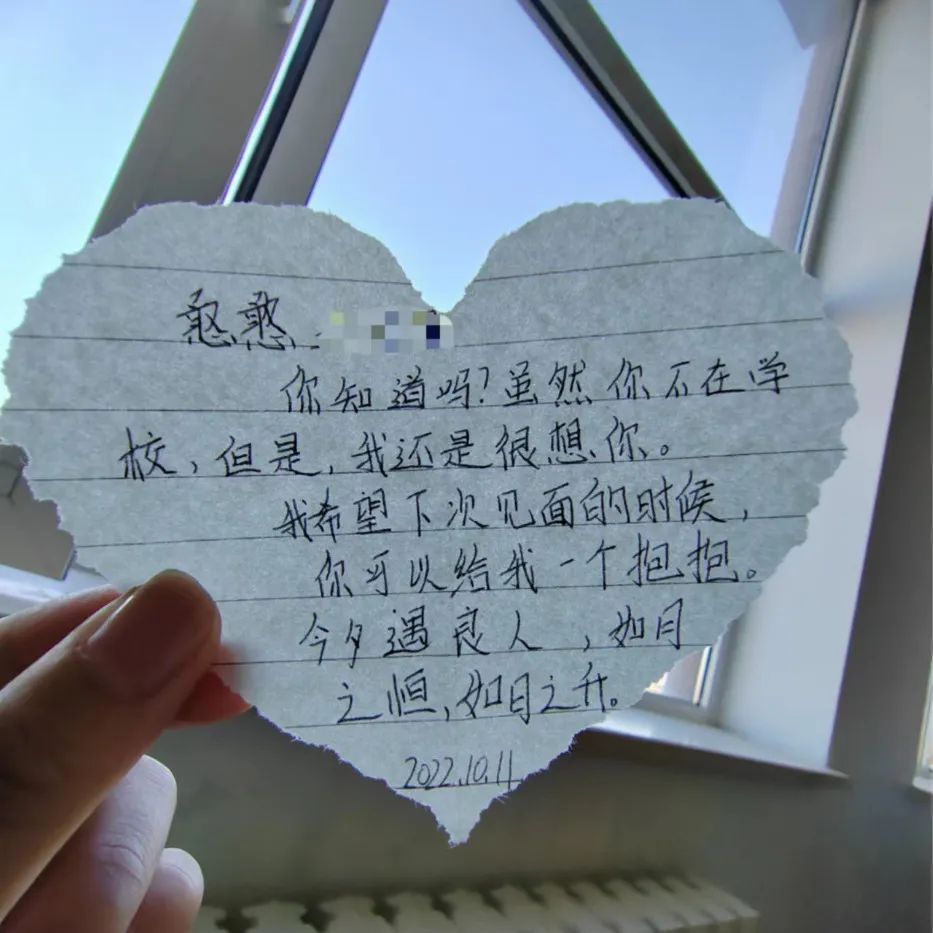 憨憨:
你知道吗?虽然你不在学
校,但是,我还是很想你。
我希望下次见面的时候,
你可以给我一个抱抱。
今夕遇良人,如月
之恒,如日之升。
2022.10.11